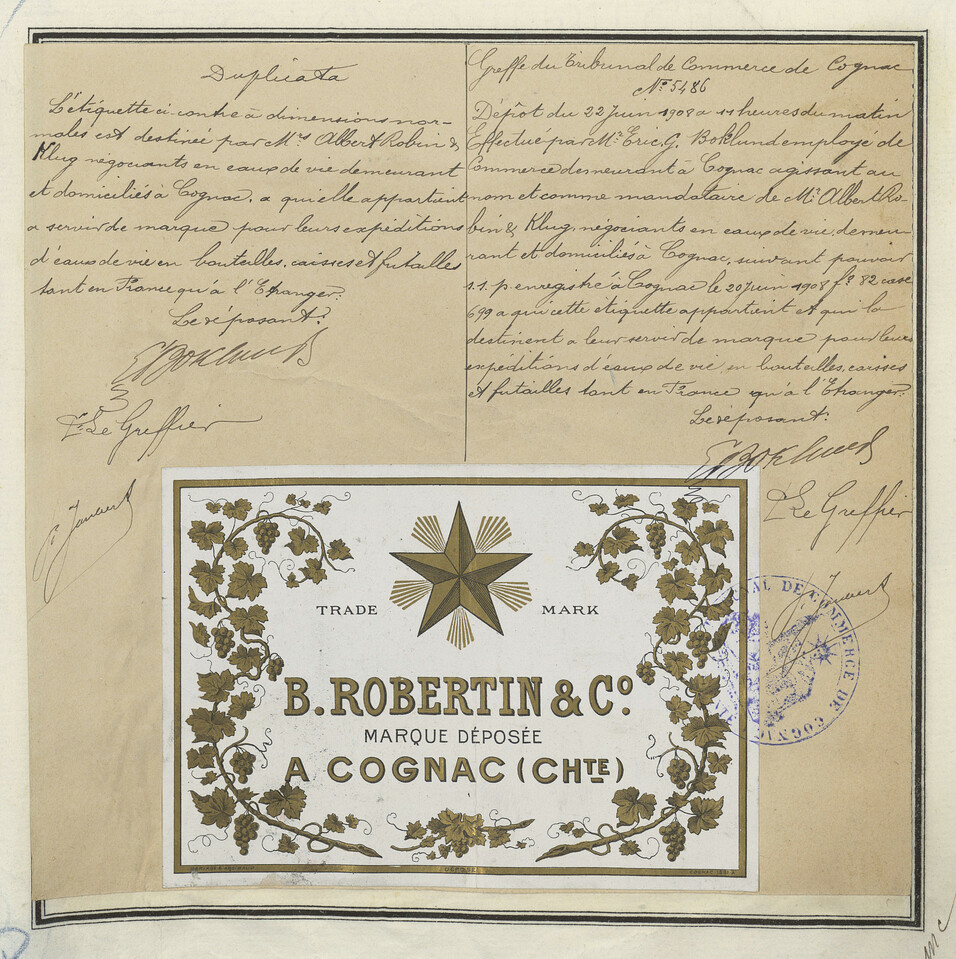 Duplicata
L'étiquette ci-contre à dimensions nor-
males est destinée par Mrs Albert Robin &
Klug négociants en eaux de vie demeurant
et domiciliés à Cognac. a qui elle appartient
a servir de marque pour leurs expéditions
d'eaux de vie en bouteilles, caisses et futailles
tant en France qu'à l'Etranger.
Le déposant:
EGBoklund
Pr Le Greffier
Greffe du Tribunal de Commerce de Cognac
No 5486
Dépôt du 22 Juin 1908 a 11 heures du matin
Effectué par Mr Eric, G, Boklund employé de
Commerce demeurant à Cognac agissant au
nom et comme mandataire de Mrs Albert Ro-
bin & Klug, négociants en eaux de vie, demeu-
rant et domiciliés à Cognac, suivant pouvoir
s.s. p enregistré à Cognac le 20 Juin 1908 fo 82 case
699 a qui cette étiquette appartient et qui la
destinent a leur servir de marque pour leurs
expéditions d'eaux de vie, en bouteilles, caisses
et futailles tant en France qu'à l'Etranger.
Le déposant:
EGBoklund
Pr Le Greffier
TRADE MARK
B. ROBERTIN & Co.
MARQUE DÉPOSÉE
A COGNAC (CHTE)
DÉPOSÉ
DE COMMERCE DE COGNAC